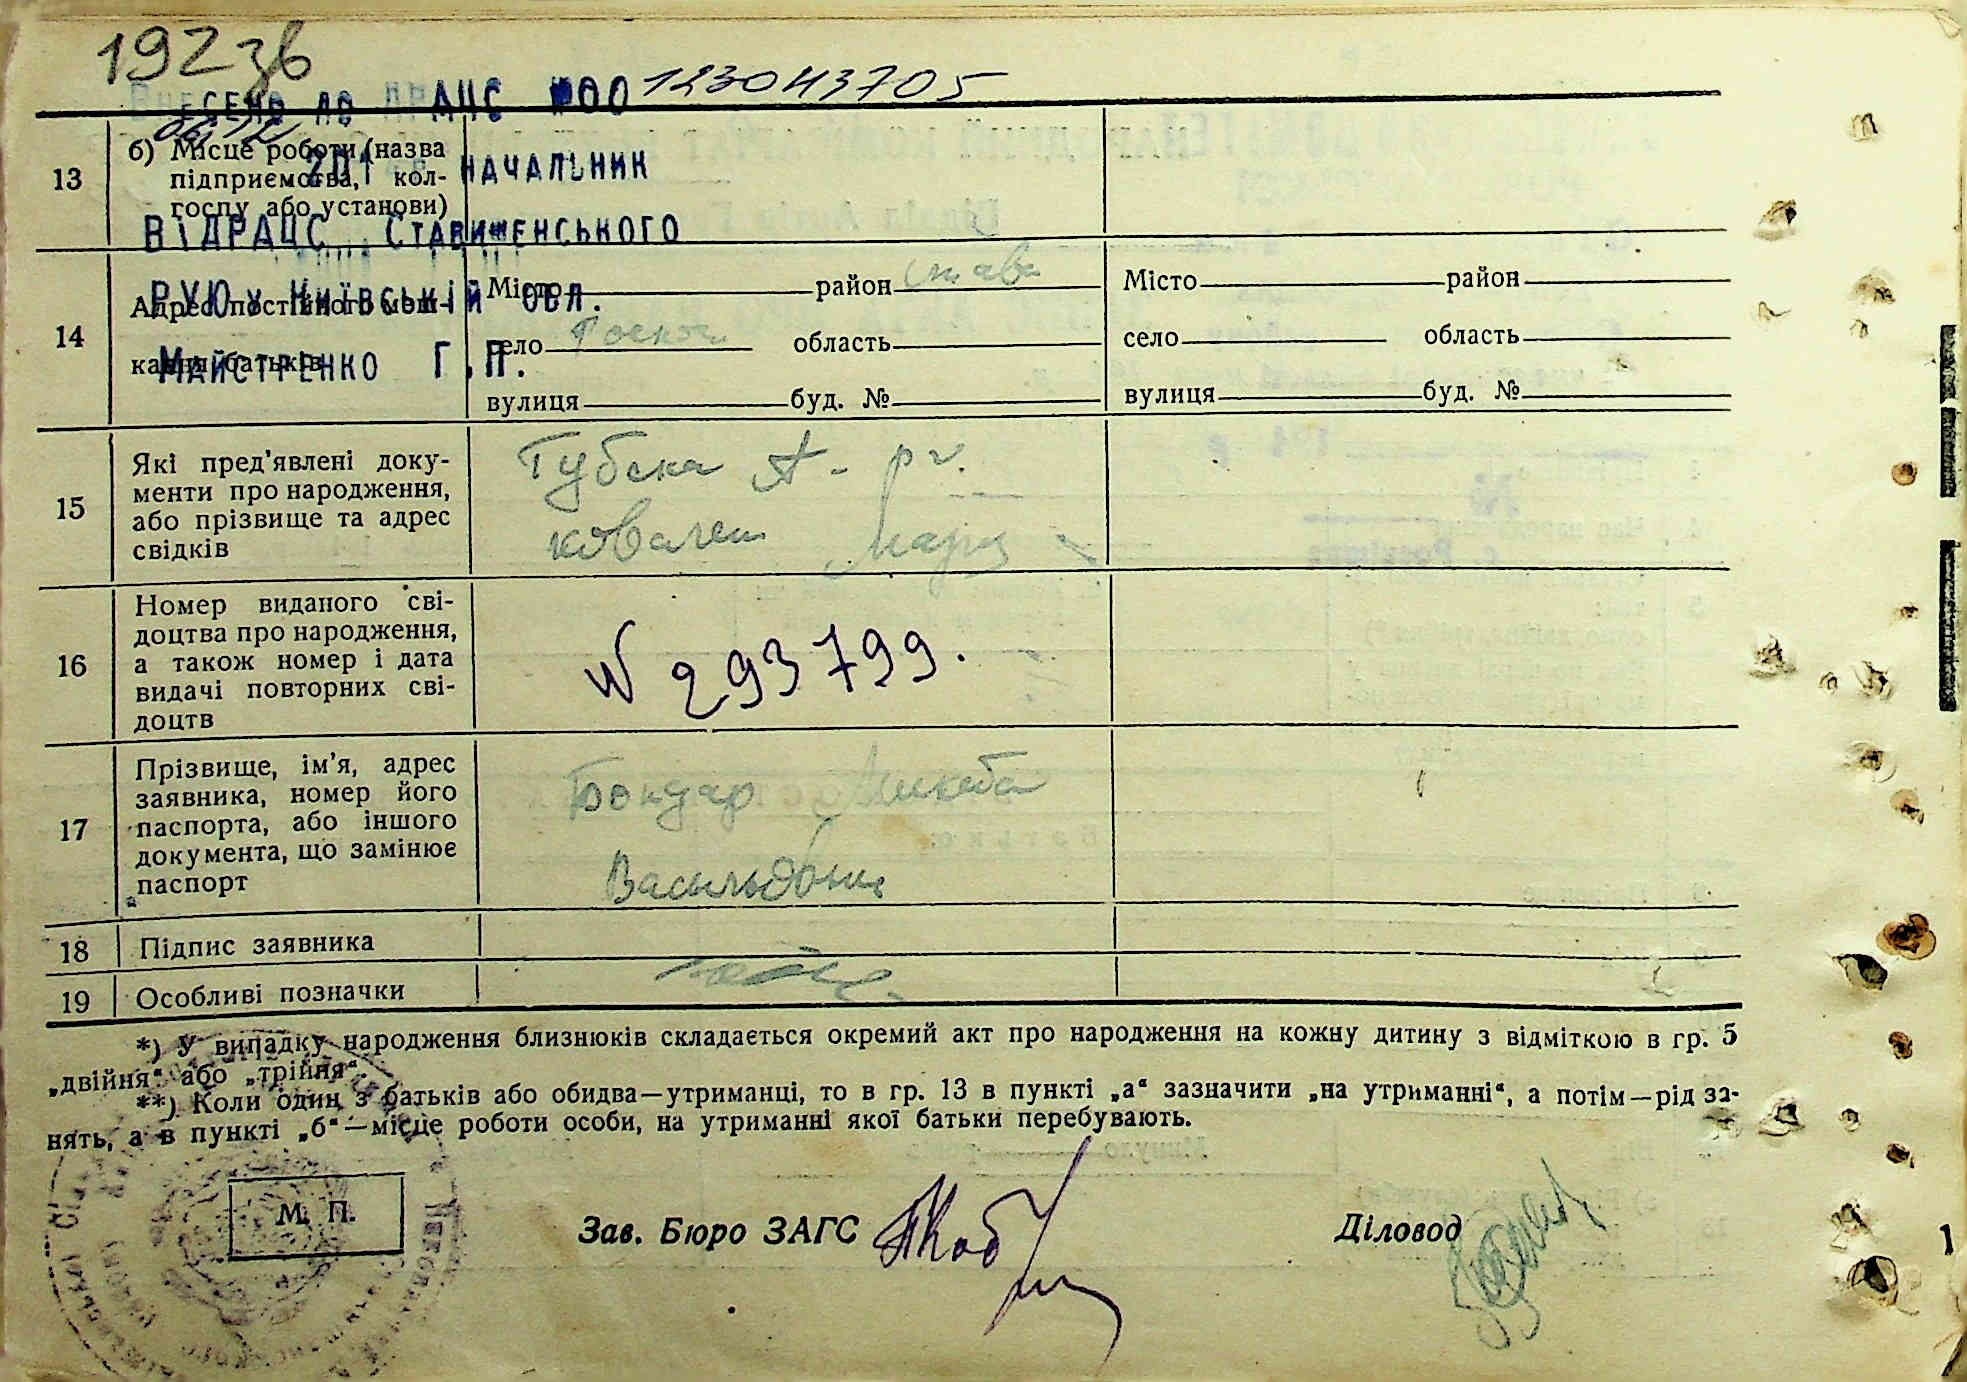 192 зв
Внесено до ДРАЦС №00123043705
201 Начальник
ВідРАЦС Ставищенського
РУЮ у Київській обл.
Майстренко Г.П.
13
б) Місце роботи (назва
підприємства, кол-
госпу або установи)
14
Адрес постійного меш-
кання батьків
Місто район Став
село область
вулиця буд. №
Місто район
село область
вулиця буд. №
15
Які пред'явлені доку-
менти про народження,
або прізвище та адрес
свідків
Губска А-
16
Номер виданого сві-
доцтва про народження,
а також номер і дата
видачі повторних сві-
доцтв
N 293799.
17
Прізвище, ім'я, адрес
заявника, номер його
паспорта, або іншого
документа, що замінює
паспорт
Бондар Микита
18
Підпис заявника
19
Особливі позначки
*) У випадку народження близнюків складається окремий акт про народження на кожну дитину з відміткою в гр. 5
„двійня“ або „трійня“.
**) Коли один з батьків або обидва—утриманці, то в гр. 13 в пункті „а“ зазначити „на утриманні“, а потім—рід за-
нять, а в пункті „б“—місце роботи особи, на утриманні якої батьки перебувають.
М. П.
Зав. Бюро ЗАГС
Діловод
1